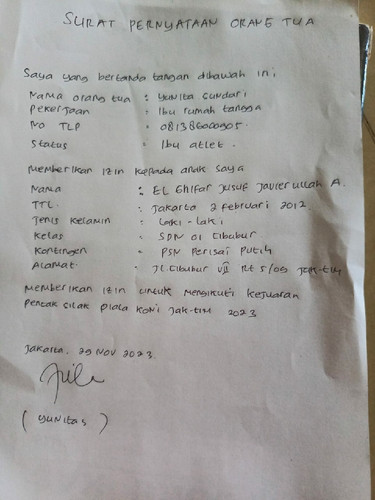 SURAT PERNYATAAN ORANG TUA
Saya yang bertanda tangan dibawah ini;
Nama orang tua : Yunita Sundari
Pekerjaan : Ibu rumah tangga
No TLP : 081386000905.
Status : Ibu atlet.
Memberikan izin kepada anak saya
Nama : EL Ghifar Jusuf Javier ullah A.
TTL. : Jakarta 2 Februari 2012.
Jenis Kelamin : Laki-laki
Kelas : SDN 01 Cibubur
Kontingen : PSN Perisai Putih
Alamat. : Jl. Cibubur VII Rt 5/09 Jak-tim
Memberikan izin untuk mengikuti kejuaran
Pencak silak Piala KONI Jak-TIM 2023
Jakarta, 29 Nov 2023.
(Yunitas)